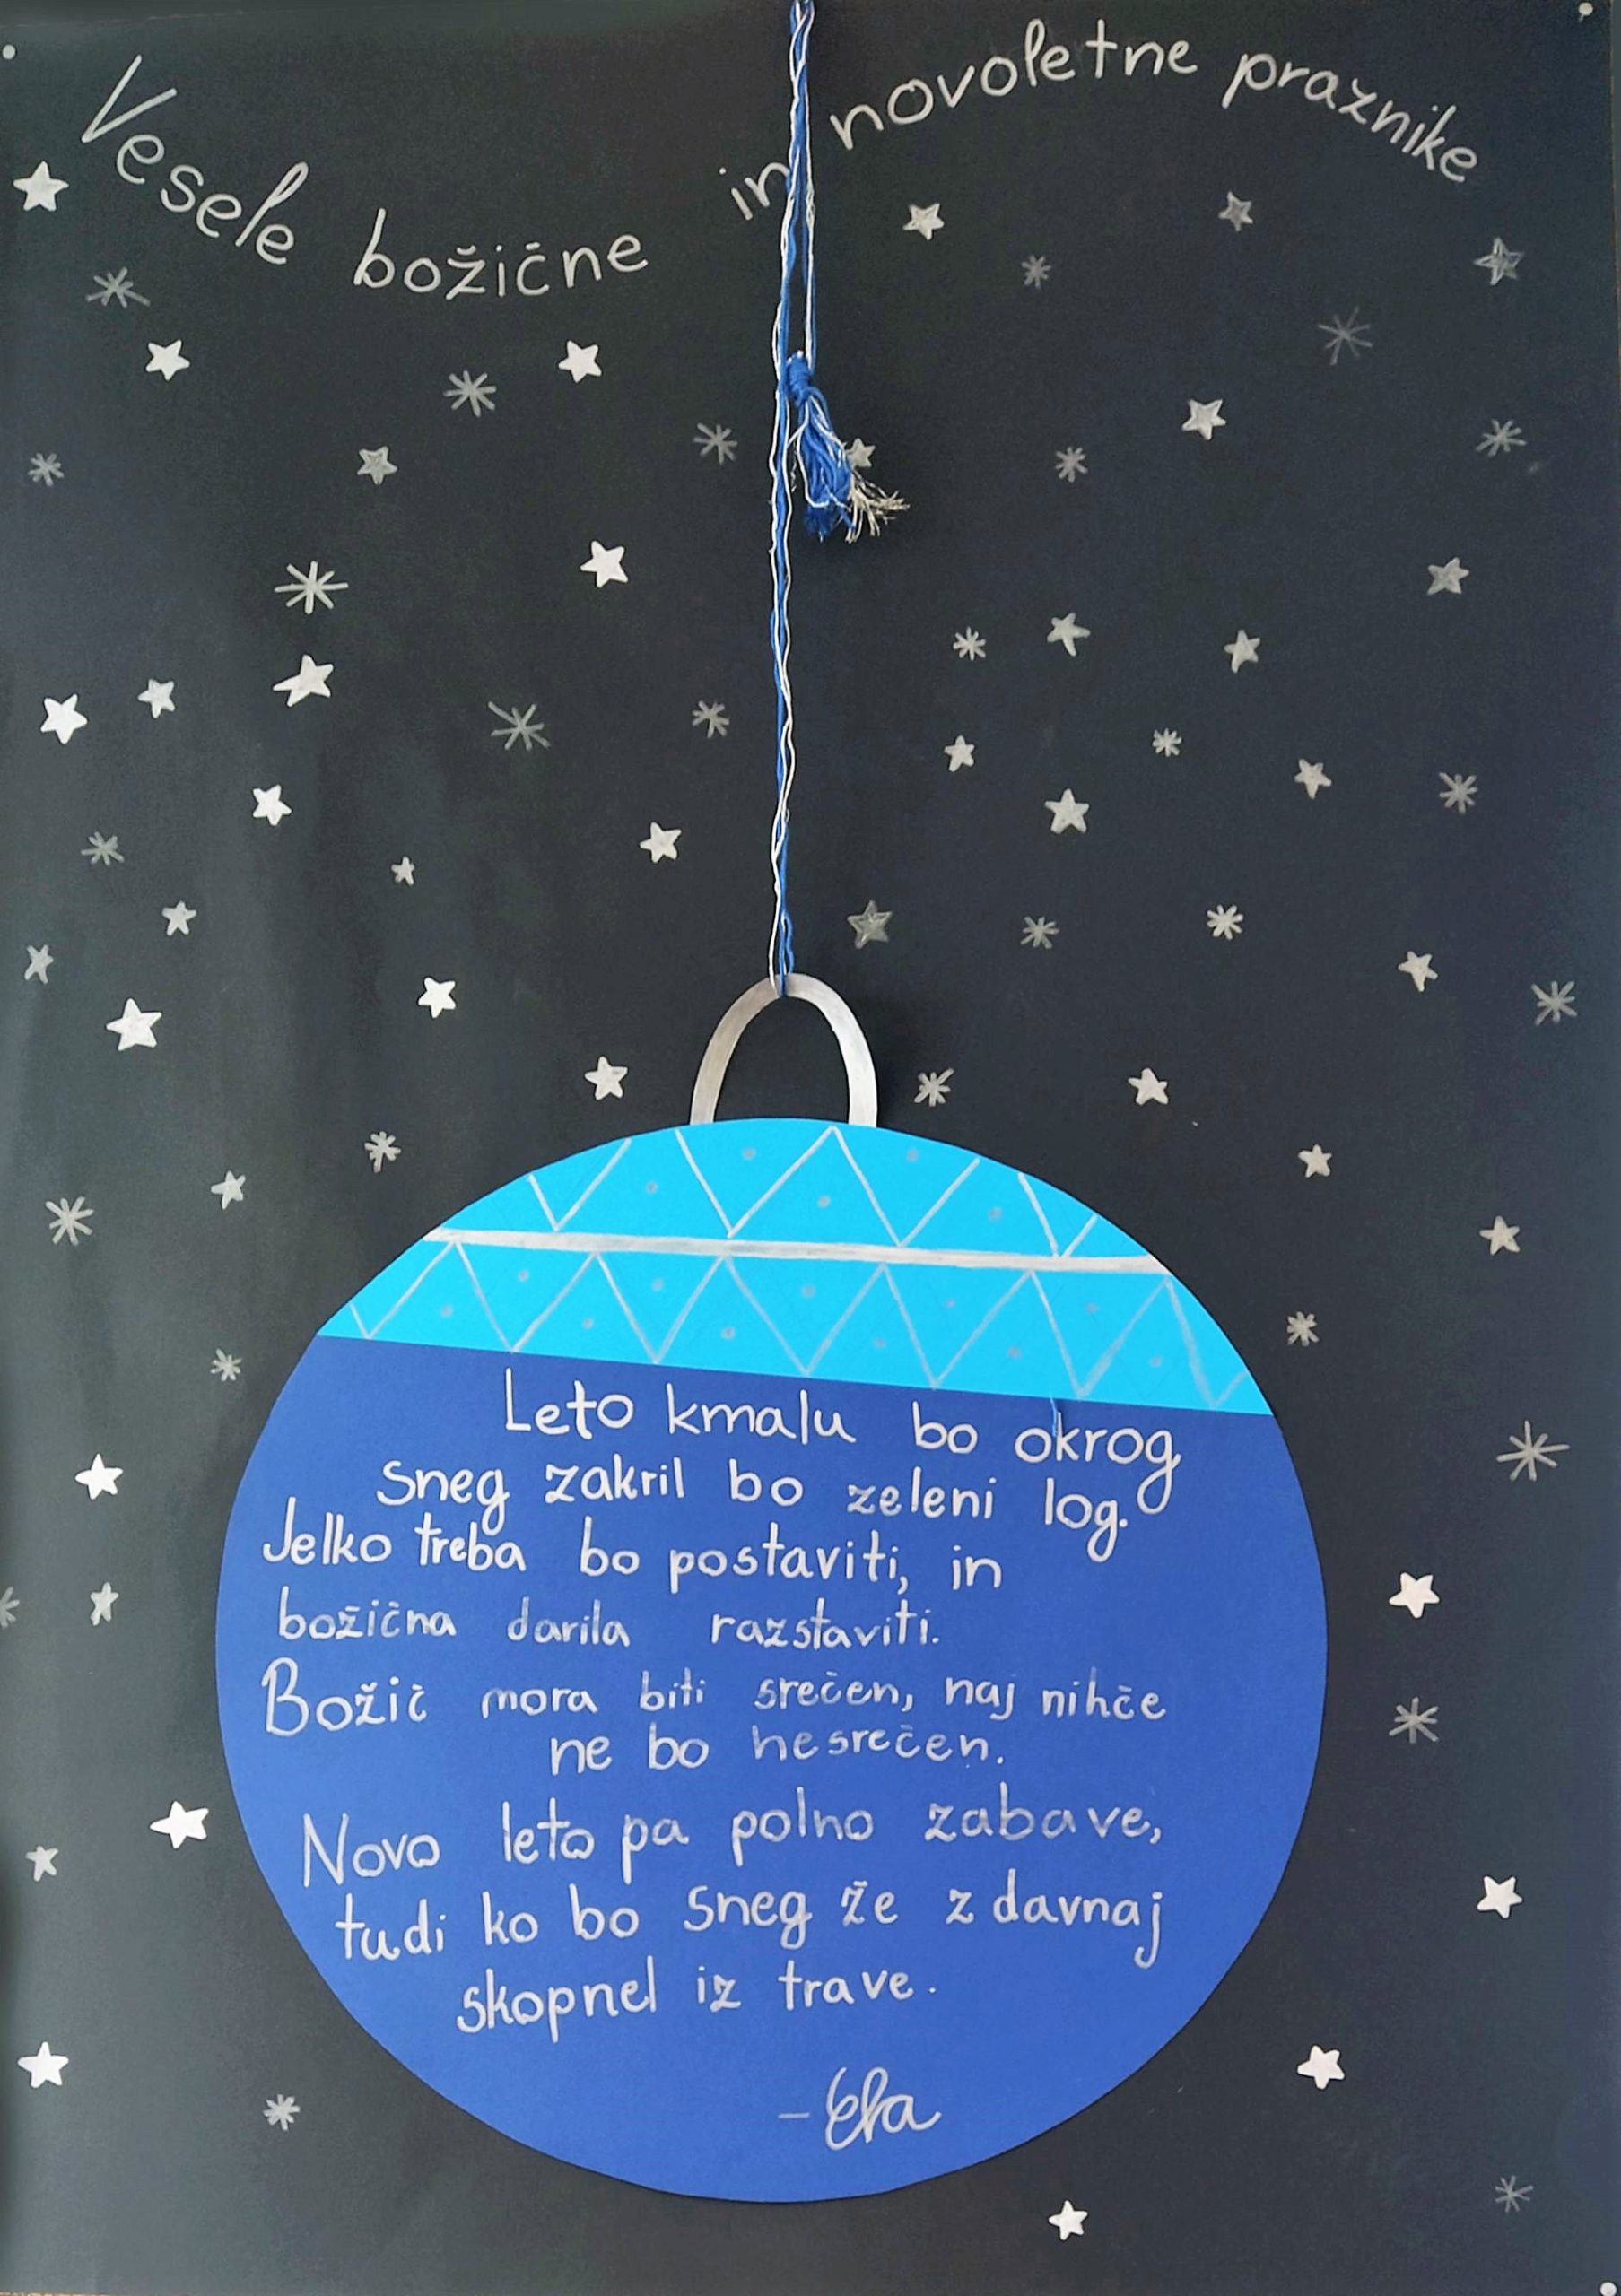 Vesele božične in novoletne praznike
Leto kmalu bo okrog
sneg zakril bo zeleni log.
Jelko treba bo postaviti, in
božična darila razstaviti.
Božič mora biti srečen, naj nihče
ne bo nesrečen.
Novo leto pa polno zabave,
tudi ko bo sneg že zdavnaj
skopnel iz trave.
- Ela